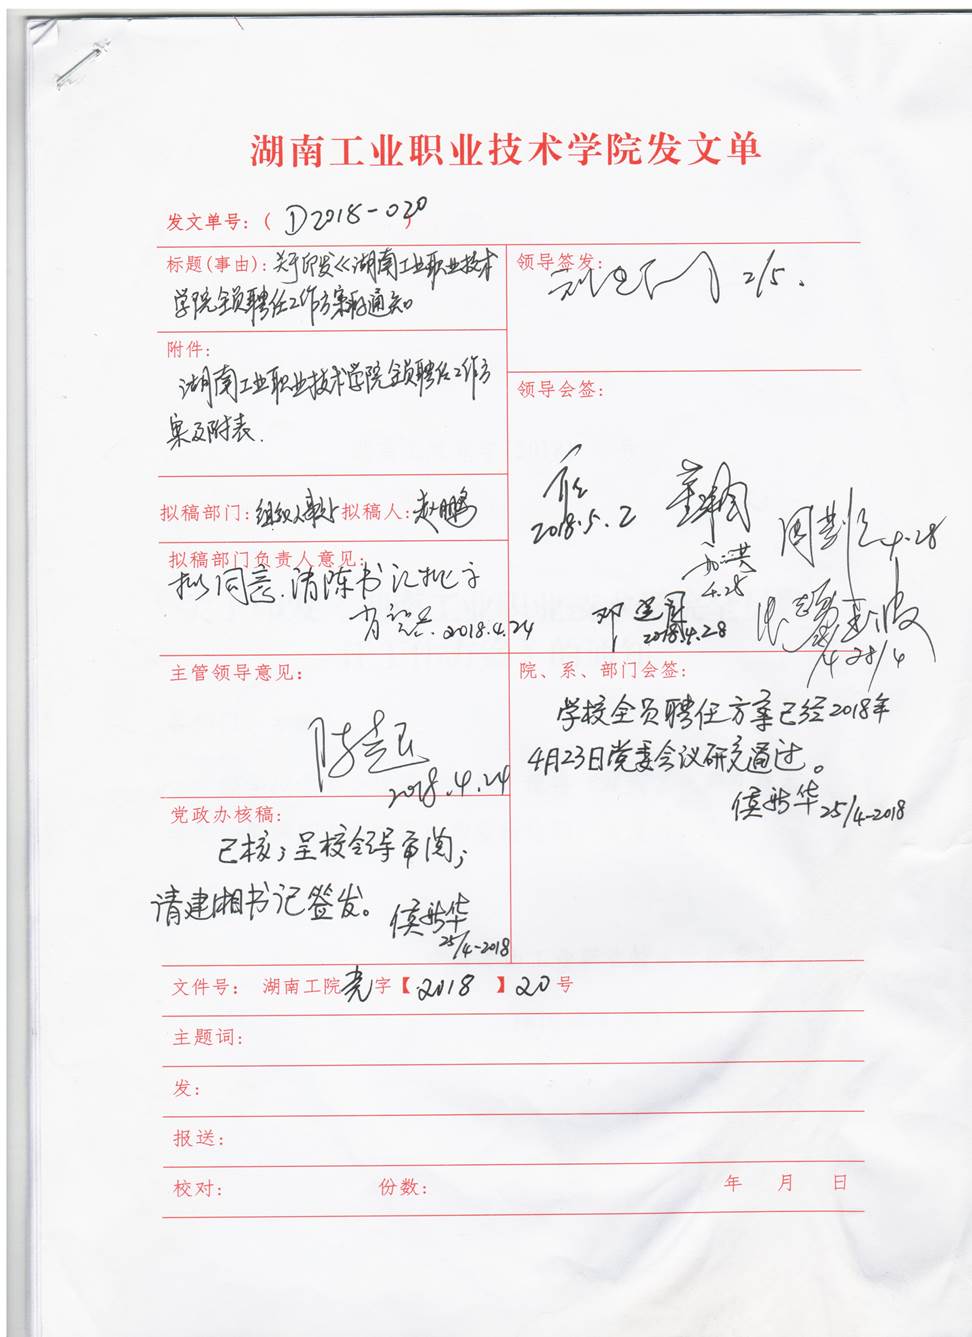 湖南工业职业技术学院发文单
发文单号：( D2018-020 )
标题(事由)：关于印发《湖南工业职业技术
学院全员聘任工作方案》的通知
领导签发： 2/5.
附件：
湖南工业职业技术学院全员聘任工作方
案及附表.
领导会签：
2018.5.2
4.28
4.28
邓
2018.4.28
4.28/4
拟稿部门：组织人事处 拟稿人：赵鹏
拟稿部门负责人意见：
拟同意.请陈书记批示
2018.4.24
主管领导意见：
2018.4.24
院、系、部门会签：
学校全员聘任方案已经2018年
4月23日党委会议研究通过。
侯新华 25/4-2018
党政办核稿：
已核；呈校领导审阅；
请建湘书记签发。
侯新华
25/4-2018
文件号： 湖南工院党字【2018】20号
主题词：
发：
报送：
校对： 份数： 年 月 日